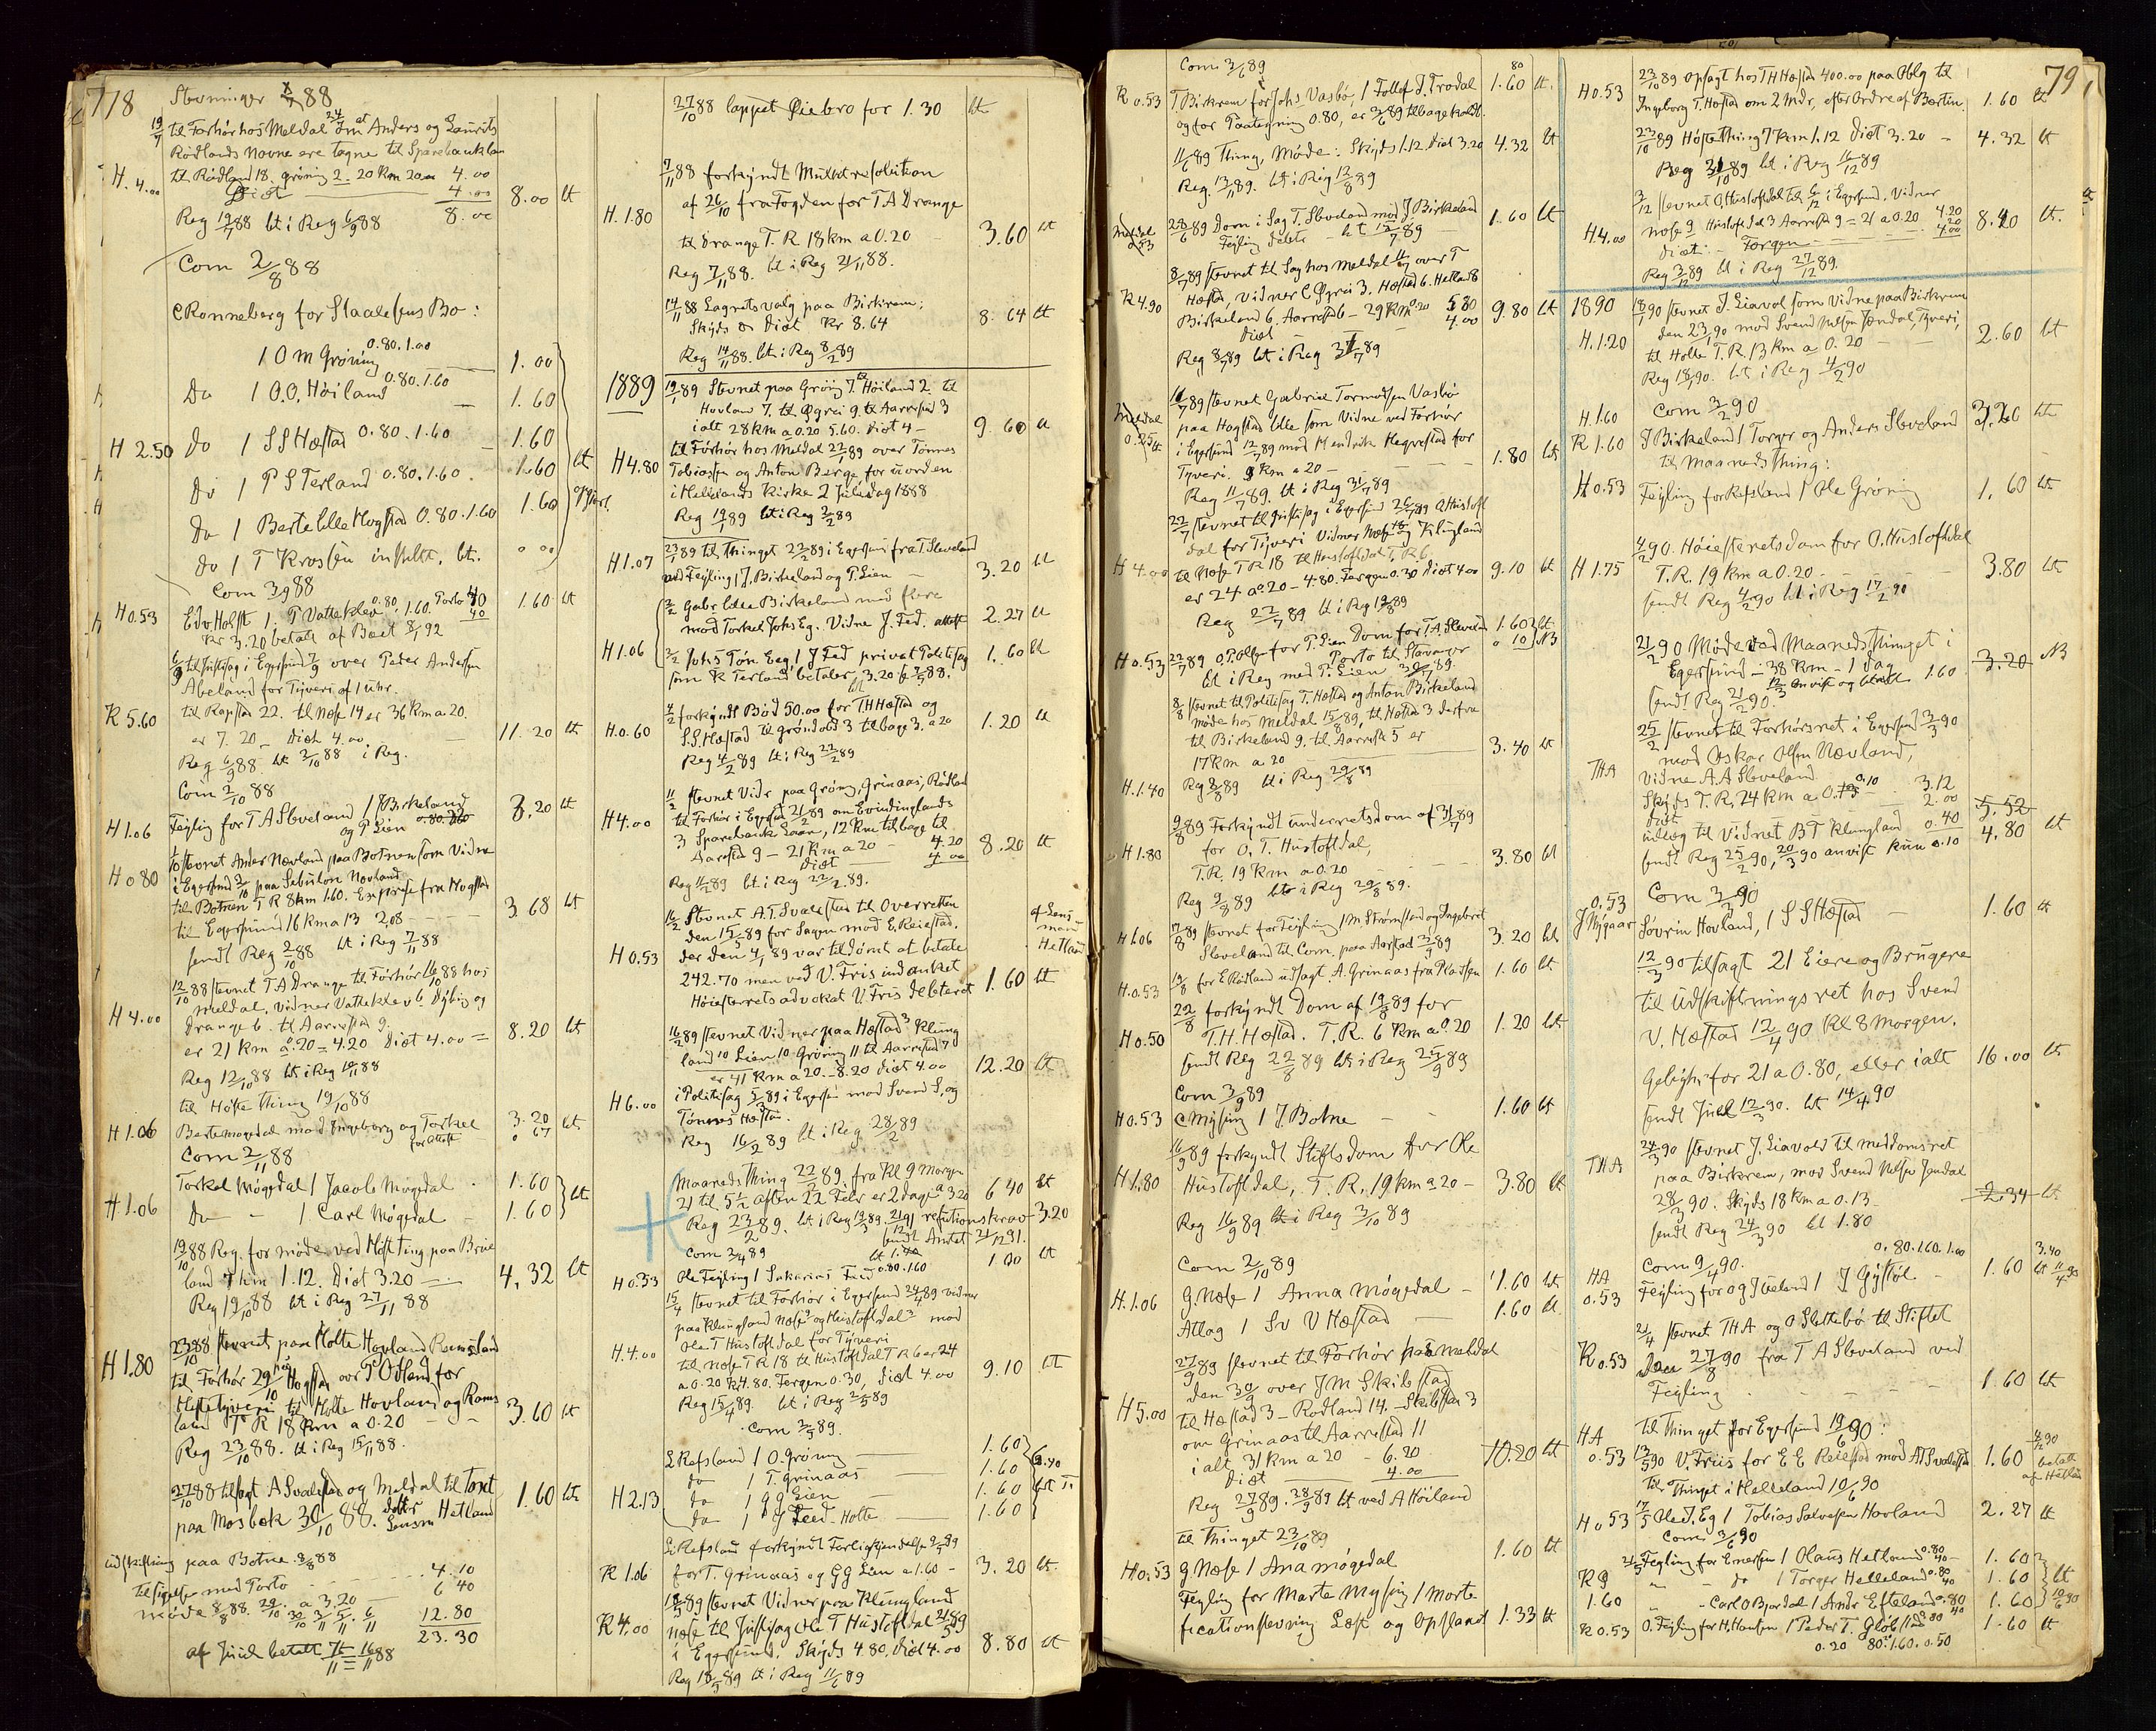 78
Stevninger 88
til Forhör hos Meldal Anders og Laurits
Rödlands Navne ere tagne til Sparebanklaan
H. 4.00 til Rödland 18. gröning 2 = 20 Km 20 4.00
Diæt 4.00 8.00 bt
Reg 19/7 88 bt i Reg 6/9 88 8.00
Com 2/8 88
C Ronneberg for Staalesens Bo :
1 O M Gröning 0.80. 1.00 1.00
Do 1 O.O. Höiland 0.80. 1.60 1.60
H 2.50 Do 1 S S Hæstad 0.80. 1.60 1.60
Do 1 P S Terland 0.80. 1.60 1.60 bt
Do 1 Berte Lille Hogstad 0.80. 1.60 1.60
Do 1 T Krossen bt.
Com 3/9 88
H 0.53 Edv. Holst 1. P Vatteklev 0.80. 1.60. Porto 40 1.60 bt
Kr 3.20 betalt af Boet 8/1 92
til Justisag i Egersund 7/9 over Peder Andersen
Abeland for Tyveri af 1 Uhr.
K 5.60 til Rapstad 22. til Nose 14 er 36 Km a 20.
er 7.20 Diæt 4.00 11.20 bt
Reg 6/9 88 bt 2/10 88 i Reg.
Com 2/10 88
H 1.06 Fejling for T A Sleveland 1 J Birkeland 3.20 bt
og P Lien
H 0 80 stevnet Ander Novland paa Botnen som Vidne
i Egersund 3/10 paa Sebulon Novland
til Botnen T R 8 km 1.60. Express fra Hogstad
til Egersund 16 Km a 13 2.08 3.68 bt
sendt Reg 2/10 88 bt i Reg 7/11 88
12/10 88 stevnet T A Drange til Forhör 16/10 88 hos
H 4.00 Meldal, vidner Vatteklev 6. Dybing og
Drange 6. til Aarrestad 9.
er 21 Km a 0.20 = 4.20 Diæt 4.00 = 8.20 bt
Reg 12/10 88 bt i Reg 10/11 88
til Höste Thing 19/10 88
H 1.06 Berte Mögedal mod Ingeborg og Torkel 3.20 bt
for Attest 0 67
Com 2/11 88
Torkel Mögedal 1 Jacob Mögedal 1.60
H 1.06 Do - 1 Carl Mögedal - 1.60 bt
19/10 88 Reg. for möde ved Höst Ting paa Birke
land 7 km 1.12. Diæt 3.20 4.32 bt
Reg 19/10 88 bt i Reg 27/11 88
23/10 88 stevnet paa Holte Hovland Ramsland
H 1.80 til Forhör 29/10 Hogstad over P O Tland for
Hestetyveri til Holte Hovland og Rams
land T R 18 Km a 0.20 - 3.60 bt
Reg 23/10 88. bt i Reg 15/11 88.
27/10 88 tilsagt A Svalestad og Meldal til Taxt
paa Mosbæk 30/10 88. Lensm Hetland 1.60 bt
Udskiftning paa Botne 3/8 88
Tilsigelse med Porto 4.10
6 40
möde 8/8 88. 29/10 30/10 3/11 5/11 6/11 a 3.20 12.80
23.30
af Juul betalt 16/11 88
27/10 88 lappet Öiebro for 1.30 bt
7/11 88 forkyndt Mulktresolution
H. 1.80 af 26/10 fra Fogden for T A Drange
til Drange T. R. 18 km a 0.20 3.60 bt
Reg 7/11 88. bt i Reg 21/11 88.
14/11 88 Lagretsvalg paa Birkrem:
Skyds og Diæt Kr 8.64 8.64 bt
Reg 14/11 88. bt i Reg 8/2 89
1889 19/1 89 Stevnet paa Gröning 7. Höiland 2. til
Hovland 7. til Ögrei 9 til Aarrestad 3
ialt 28 km a 0.20 5.60. Diæt 4 - 9.60 bt
H 4.80 til Forhör hos Meldal 22/1 89 over Tönnes
Tobiassen og Anton Berge for uorden
i Hellelands Kirke 2 Juledag 1888
Reg 19/1 89 bt i Reg 2/2 89
H 1.07 23/1 89 til Thinget 22/2 89 i Egersund fra T Sleveland
ved Fejling 1 J. Birkeland og P. Lien 3.20 bt
2/2 Gabr Lille Birkeland med flere
mod Torkel Johs Eg. Vidne J. Fed. attest 2.27 bt
H 1.06 2/2 Johs Tön. Eeg 1 J Fed privat Politisag 1.60 bt
som K Terland betaler 3.20
H.0.60 4/2 forkyndt Bod 50.00 for T H Hæstad og
S.S. Hæstad til Gröndal 3 tilbage 3. a 20 1.20 bt
Reg 4/2 89 bt i Reg 22/2 89
11/2 stevnet Vidr paa Gröning, Grinaas, Rödland
H 4.00 til Forhör i Egersund 21/2 89 om Evindinglands
3 Sparebank Laan, 12 Km tilbage til
Aarestad 9 - 21 Km a 20 - 4.20
Diæt 4.00 8.20 bt
Reg 11/2 89 bt i Reg 22/2 89.
16/2 Stevnet A.T. Svalestad til Overretten
den 15/3 89 for Sagen mod E. Reiestad.
H 0.53 der den 4/1 89 var tildömt at betale
242.70 men ved V. Friis indanket 1.60 bt
Höiesterets advokat V. Friis debiteret
af Lensmand Hetland
16/2 89 stevnet Vidner paa Hæstad 3 Kling
land 10 Lien 10 Gröning 11 til Aarrestad 7
er 41 Km a 20 - 8.20 Diæt 4.00 12.20 bt
H 6.00 i Politisag 5/3 89 i Egersund mod Svend S. og
Tönnes Hæstad.
Reg 16/2 89 bt i Reg 28/2 89
Maaneds Thing 22/2 89. fra Kl 9 Morgen
21 til 5½ aften 22 Febr er 2 Dage a 3.20 6 40 bt
Reg 23/2 89. bt i Reg 19/3 89. refusionskrav 3.20
Com 3/4 89
H 0.53 Ole Fejling 1 Sakarias Feed 0.80. 1.60 1.00 bt
15/4 stevnet til Forhör i Egersund 24/4 89 vidner
paa Klungland Nose og Hustoftdal mod
H. 4.00 Ole T Hustoftdal for Tyveri
til Nose T R 18 til Hustoftdal T R 6 er 24
a 0.20 Kr 4.80. Fergen 0.30, Diæt 4.00 9.10 bt
Reg 15/4 89. bt i Reg 2/5 89
Com 3/5 89.
L Refsland 1 O. Gröning 1.60
do 1 T. Grinaas 1.60 6.40
H 2.13 do 1 G G Lien 1.60 bt
do 1 P J Feed - Holte 1.60
L Refsland forkyndt Forligskjendelse 2/5 89
K 1.06 for T. Grinaas og G G Lien a 1.60 - 3.20 bt.
18/5 89 stevnet Vidner paa Klungland
K 4.00 Nose til Justisag Ole T Hustoftdal 21/5 89
i Egersund. Skyds 4.80. Diæt 4.00 8.80 bt
Reg 18/5 89 bt i Reg 11/6 89
79
Com 3/6 89
K 0.53 T Birkrem for Johs Vasbö, 1 Tollef J. Trodal 1.60 bt.
og for Paategning 0.80, er 3/6 89 tilbagekaldt.
11/6 89 Thing, Möde: Skyds 1.12 Diæt 3.20 4.32 bt
Reg. 13/6 89. bt i Reg 13/8 89
Meldal 0.53 28/6 89 Dom i Sag T. Sleveland mod J. Birkeland 1.60 bt
Fejling debite - bt 15/7 89 -
8/7 89 stevnet til Sag hos Meldal over T
K 4.90 Hæstad, vidner C Ögrei 3. Hæstad 6. Helland 8
Birkeland 6. Aarrestad 6 - 29 Km 0.20 5.80 9.80 bt
Diæt 4.00
Reg 8/7 89 bt i Reg 31/7 89
Meldal 11/7 89 stevnet Gabriel Tormodsen Vasbö
paa Hogstad Lille som Vidne ved Forhör
i Egersund 12/7 89 mod Hendrik Hegrestad for
Tyveri. 9 Km a 20 - 1.80 bt
Reg 11/7 89. bt i Reg 31/7 89
22/7 stevnet til Justisag i Egersund 26/7 89 O Hustoft
dal for Tyveri Vidner Nose 18 og Klungland
H 4.00 til Nose T R 18 til Hustoftdal T. R 6
er 24 a 0.20 - 4.80. Fergen 0.30 Diæt 4.00 9.10 bt
Reg 22/7 89 bt i Reg 19/8 89
H 0.53 23/7 89 O.P. Olsen for P. Lien Dom for T A. Sleveland 1.60 bt
Porto til Stavanger 0 10 NB
bt i Reg med P. Lien
8/8 stevnet til Politisag T. Hæstad og Anton Birkeland
möde hos Meldal 15/8 89, til Hæstad 3 derfra
til Birkeland 9. til Aarrestad 5 er 3.40 bt
17 Km a 20
H. 1.40 Reg 8/8 89 bt i Reg 29/8 89
9/8 89 Forkyndt underretsdom af 31/7 89
H 1.80 for O. T. Hustoftdal, 3.80 bt
T.R. 19 Km a 0.20 -
Reg 9/8 89 bt i Reg 29/8 89.
H 1.06 17/8 89 stevnet for Fejling 1 M. Strömstad og Ingebret 3.20 bt
Sleveland til Com. paa Aarstad 3/9 89
H. 0.53 19/8 for E Rödland udsagt. A. Grinaas fra Pladsen 1.60 bt.
22/8 forkyndt Dom af 19/8 89 for
H 0.50 T.H. Hæstad. T.R. 6 Km a 0.20 1.20 bt
sendt Reg 22/8 89 bt i Reg 25/9 89
Com 3/9 89
H 0.53 C Mysing 1 J Botne - 1.60 bt
16/9 89 forkyndt Stiftsdom for Ole
H 1.80 Hustoftdal, T. R. 19 Km a 20 - 3.80 bt
Reg 16/9 89 bt i Reg 3/10 89
Com 2/10 89
H. 1.06 G. Nose 1 Anna Mögedal - 1.60 bt.
Atlag 1 Sv V Hæstad 1.60 bt.
27/9 89 stevnet til Forhör hos Meldal
den 30/9 over J M Skibstad
H 5.00 til Hæstad 3 - Rodland 14. - Skibstad 3
om Grinaas til Aarrestad 11
ialt 31 Km a 20 - 6.20 10.20 bt
Diæt 4.00
Reg 27/9 89. 28/9 89 bt ved A Höiland
til Thinget 23/10 89
H 0.53 G. Nose 1 Ana Mögedal 1.60 bt
Fejling for Marte Mysing 1 Morti
ficationstevning Læst og Opslaaet 1.33 bt
H 0.53 23/10 89 Opsagt hos T H Hæstad 400.00 paa Oblg til
Ingeborg T. Hæstad om 2 Mdr, efter Ordre af Bertin. 1.60 bt
23/10 89 Höstething 7 Km 1.12 Diæt 3.20 - 4.32 bt
Reg 31/10 89 bt i Reg 16/12 89
3/12 stevnet O. Hustoftdal til 6/12 i Egersund. Vidner
H. 4.00 Nose 9 Hustoftdal 3 Aarrestad 9 = 21 a 0.20 4.20 8.40 bt.
Diæt - Fergen 4.00
Reg 3/12 89 bt i Reg 27/12 89.
1890 18/1 90 stevnet J. Liavol som Vidne paa Birkrem
den 23/1 90 mod Svend Nilsen Jendal, Tyveri,
H. 1.20 til Holte T. R. 13 Km a 0.20 - 2.60 bt
Reg 18/1 90. bt i Reg 4/2 90
H. 1.60 Com 3/2 90
K 1.60 J Birkeland 1 Torger og Anders Sleveland 3.20 bt
til Maaneds Thing:
H 0.53 Fejling for Refsland 1 Ole Gröning 1.60 bt
4/2 90. Höiesteretsdom for O. Hustoftdal
H 1.75 T.R. 19 Km a 0.20 - 3.80 bt
sendt Reg 4/2 90 bt i Reg 17/2 90
21/2 90 Möde ved Maaneds Thinget i
Egersund - 38 Km - 1 Dag 3.20 NB
sendt Reg 21/2 90. anvist og betalt 1.60
25/2 stevnet til Forhörsret i Egersund 3/3 90
mod Oskar Olsen Novland,
THA vidne A A Sleveland
Skyds T. R. 24 Km a 0.13 3.12
Diæt 2.00 5.52
udlæg til Vidnet B T Klungland 0.40 4.80 bt
sendt Reg 25/2 90, 20/3 90 anvist kun 0.10
Com 3/3 90
0.53 J Mygaar Sövrin Hovland, 1 S S Hæstad - 1.60 bt
12/3 90 tilsagt 21 Eiere og Brugere
til Udskiftningsret hos Svend
V. Hæstad 12/4 90 Kl 8 Morgen.
Gebyhr for 21 a 0.80, eller ialt 16.00 bt
sendt Juul 12/3 90. bt 14/4 90
24/3 90 stevnet J. Liavold til Meddomsret
THA paa Birkrem, mod Svend Nilsen Jendal
28/3 90. Skyds 18 Km a 0.13 - 2.34 bt.
sendt Reg 24/3 90 bt 1.80
Com 9/4 90. 0.80. 1.60. 1.00
HA 0.53 Fejling for Og J Sæland 1 J Gystöl - 1.60 bt
21/4 stevnet THA og O Slettebö til Stiftet
K 0.53 Den 27/8 90 fra T A Sleveland ved
Fejling 1.60 bt
HA Til Thinget for Egersund 19/6 90:
0.53 13/5 90 V. Friis for E E Reiestad mod AT Svalestad 1.60 betalt af Hetland
Til Thinget i Helleland 10/6 90
H 0.53 17/5 Ole J. Eg 1 Tobias Salvesen Hovland 2.27 bt
Com 3/6 90
21/5 Fejling for Emersen 1 Olaus Hetland 0.80 1.60
K 9 " - do 1 Torger Helleland 0.80 1.60 bt
1.60 " - Carl O Bjordal 1 Andr Efteland 0.80 1.60
K 0.53 O. Fejling for H. Hansen 1 Peder T. Glöbstad 1.60 bt
0.20 80. 1.60. 0.50